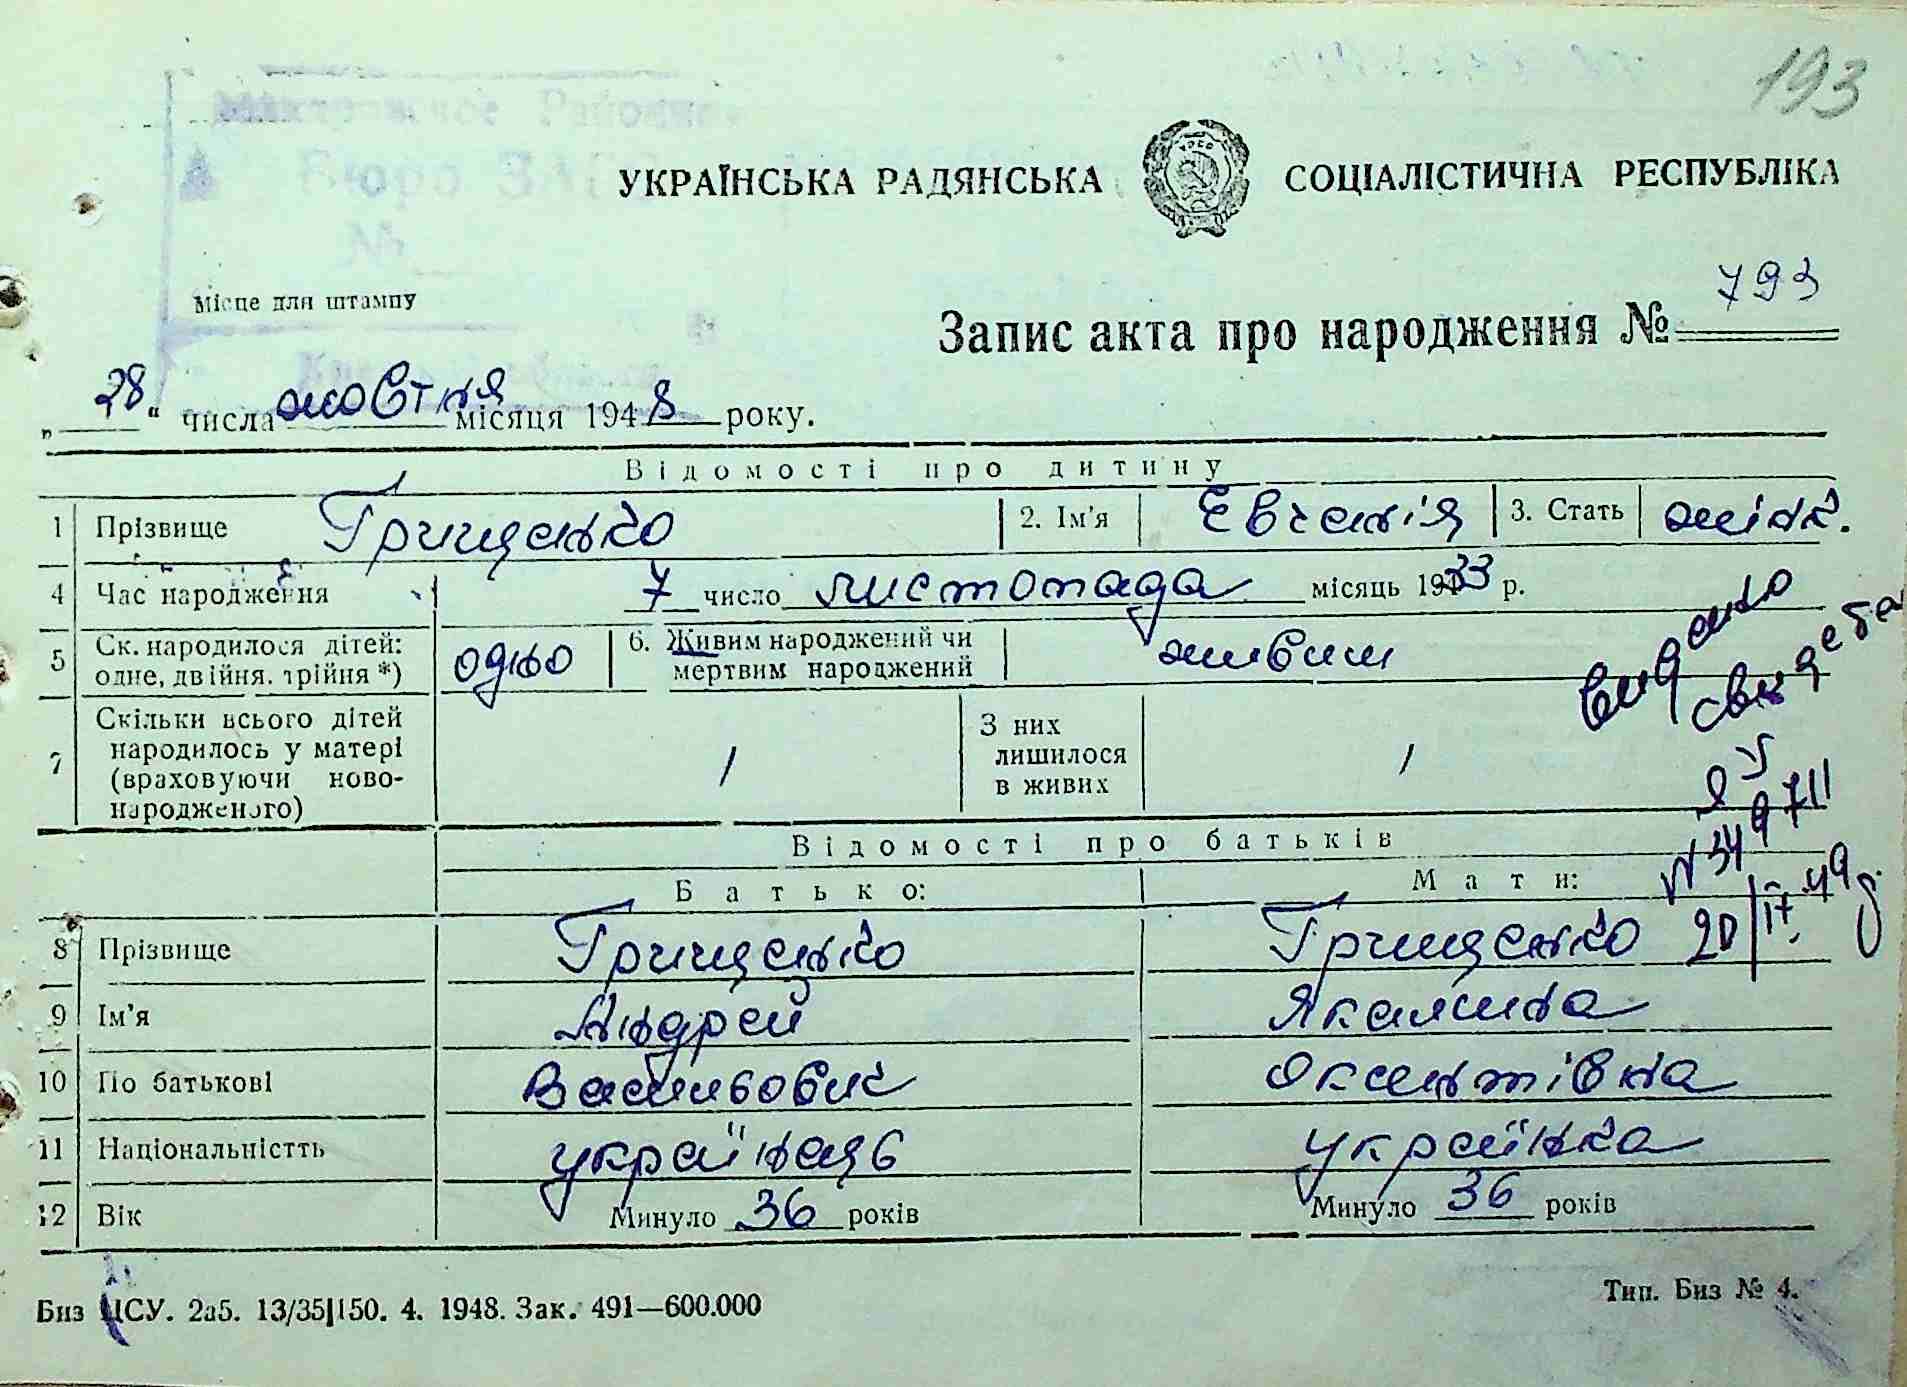 193
Районне
Бюро ЗАГС
№
УКРАЇНСЬКА РАДЯНСЬКА СОЦІАЛІСТИЧНА РЕСПУБЛІКА
Місце для штампу
Запис акта про народження № 793
„28“ числа жовтня місяця 1948 року.
Відомості про дитину
1 Прізвище Грищенко 2. Ім'я Євгенія 3. Стать жінк.
4 Час народження 7 число листопада місяць 1933 р.
5 Ск. народилося дітей: одне, двійня. трійня *) одно 6. Живим народжений чи мертвим народжений живим
видано
свидетв
7 Скільки всього дітей народилось у матері (враховуючи новонародженого) / З них лишилося в живих /
№ 349711
20/IV 49
Відомості про батьків
Батько: Мати:
8 Прізвище Грищенко Грищенко
9 Ім'я Андрей Якилина
10 По батькові Васильович Оксентівна
11 Національністть українець українка
12 Вік Минуло 36 років Минуло 36 років
Биз ЦСУ. 2а5. 13/35|150. 4. 1948. Зак. 491—600.000 Тип. Биз № 4.